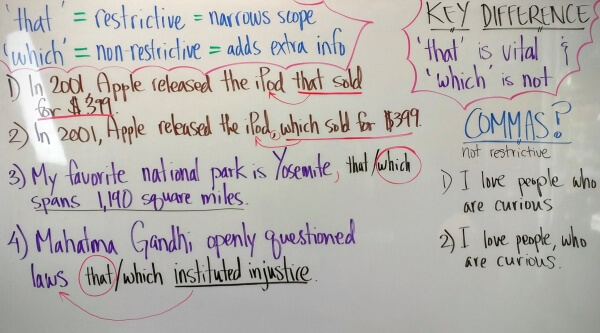 'that' = restrictive = narrows scope
'which' = non-restrictive = adds extra info
1) In 2001 Apple released the iPod that sold
for $399.
2) In 2001, Apple released the iPod, which sold for $399.
3) My favorite national park is Yosemite, that/which
spans 1,190 square miles.
4) Mahatma Gandhi openly questioned
laws that/which instituted injustice.
KEY DIFFERENCE
'that' is vital &
'which' is not
COMMAS?
not restrictive
1) I love people who
are curious
2) I love people, who
are curious.